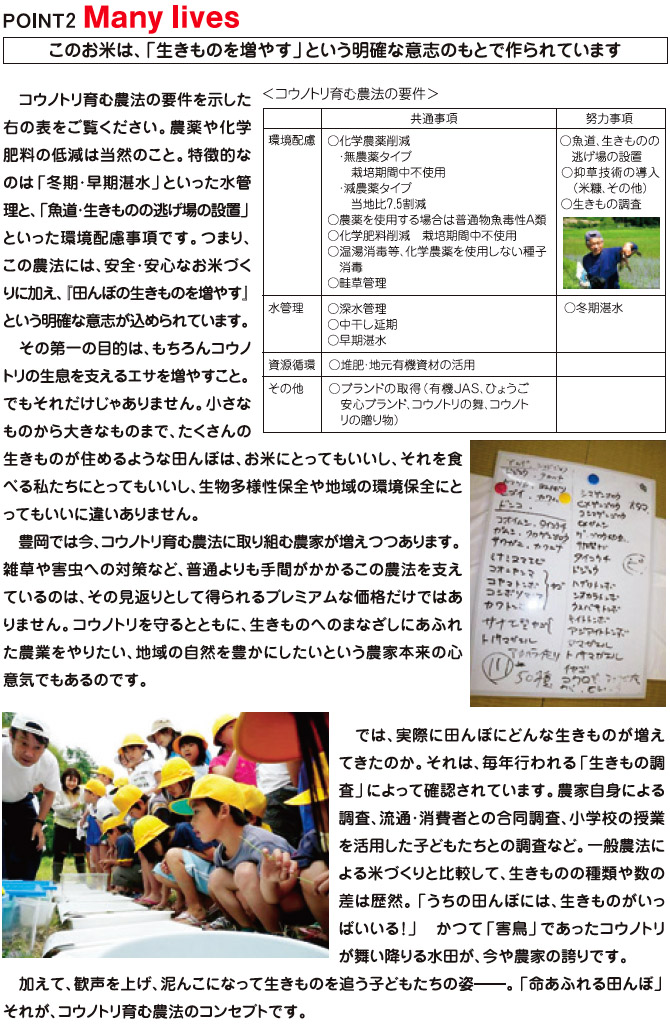 POINT2 Many lives
このお米は、「生きものを増やす」という明確な意志のもとで作られています
コウノトリ育む農法の要件を示した
右の表をご覧ください。農薬や化学
肥料の低減は当然のこと。特徴的な
のは「冬期・早期湛水」といった水管
理と、「魚道・生きものの逃げ場の設置」
といった環境配慮事項です。つまり、
この農法には、安全・安心なお米づく
りに加え、『田んぼの生きものを増やす』
という明確な意志が込められています。
その第一の目的は、もちろんコウノ
トリの生息を支えるエサを増やすこと。
でもそれだけじゃありません。小さな
ものから大きなものまで、たくさんの
生きものが住めるような田んぼは、お米にとってもいいし、それを食
べる私たちにとってもいいし、生物多様性保全や地域の環境保全にと
ってもいいに違いありません。
豊岡では今、コウノトリ育む農法に取り組む農家が増えつつあります。
雑草や害虫への対策など、普通よりも手間がかかるこの農法を支え
ているのは、その見返りとして得られるプレミアムな価格だけではあ
りません。コウノトリを守るとともに、生きものへのまなざしにあふれ
た農業をやりたい、地域の自然を豊かにしたいという農家本来の心
意気でもあるのです。
＜コウノトリ育む農法の要件＞
共通事項 努力事項
環境配慮
○化学農薬削減
・無農薬タイプ
栽培期間中不使用
・減農薬タイプ
当地比7.5割減
○農薬を使用する場合は普通物魚毒性A類
○化学肥料削減 栽培期間中不使用
○温湯消毒等、化学農薬を使用しない種子
消毒
○畦草管理
○魚道、生きものの
逃げ場の設置
○抑草技術の導入
（米糠、その他）
○生きもの調査
水管理
○深水管理
○中干し延期
○早期湛水
○冬期湛水
資源循環 ○堆肥・地元有機資材の活用
その他 ○ブランドの取得（有機JAS、ひょうご
安心ブランド、コウノトリの舞、コウノト
リの贈り物）
ドジョウ
ドンコ
コオイムシ
ミナミヌマエビ
コオニヤンマ
コヤマトンボ
コシボソヤンマ
カワトンボ
トノサマガエル
シマゲンゴロウ
ヒメゲンゴロウ
コシマゲンゴロウ
タイコウチ
ドジョウ
ハグロトンボ
シオカラトンボ
ウスバキトンボ
イトトンボ
アジアイトトンボ
アマガエル
トノサマガエル
イナゴ
50種
では、実際に田んぼにどんな生きものが増え
てきたのか。それは、毎年行われる「生きもの調
査」によって確認されています。農家自身による
調査、流通・消費者との合同調査、小学校の授業
を活用した子どもたちとの調査など。一般農法に
よる米づくりと比較して、生きものの種類や数の
差は歴然。「うちの田んぼには、生きものがいっ
ぱいいる！」 かつて「害鳥」であったコウノトリ
が舞い降りる水田が、今や農家の誇りです。
加えて、歓声を上げ、泥んこになって生きものを追う子どもたちの姿――。「命あふれる田んぼ」
それが、コウノトリ育む農法のコンセプトです。